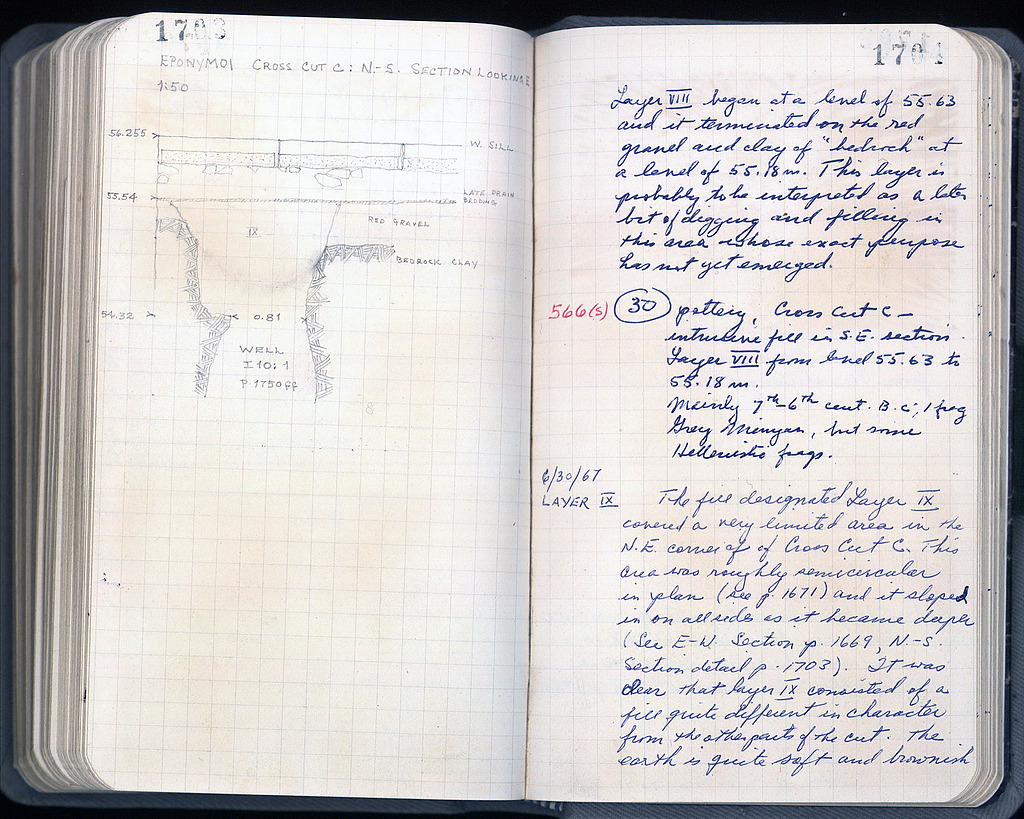 1703
EPONYMOI CROSS CUT C: N.-S. SECTION LOOKING E
1:50
56.255
W. SILL
55.54
LATE DRAIN
BEDDING
RED GRAVEL
IX
BEDROCK CLAY
54.32
0.81
WELL
I 10:1
P. 1750 ff
1701
Layer VIII began at a level of 55.63
and it terminated on the red
gravel and clay of "bedrock" at
a level of 55.18 m. This layer is
probably to be interpreted as a later
bit of digging and filling in
this area whose exact purpose
has not yet emerged.
566(s) 30 pottery, Cross Cut C –
intrusive fill in S.E. section.
Layer VIII from level 55.63 to
55.18 m.
Mainly 7th-6th cent. B.C., 1 frag
Grey Minyan, but some
Hellenistic frags.
6/30/67
LAYER IX The fill designated Layer IX
covered a very limited area in the
N.E. corner of of Cross Cut C. This
area was roughly semicircular
in plan (see p. 1671) and it sloped
in on all sides as it became deeper
(See E-W. Section p. 1669, N.-S.
Section detail p. 1703). It was
clear that layer IX consisted of a
fill quite different in character
from the other parts of the cut. The
earth is quite soft and brownish